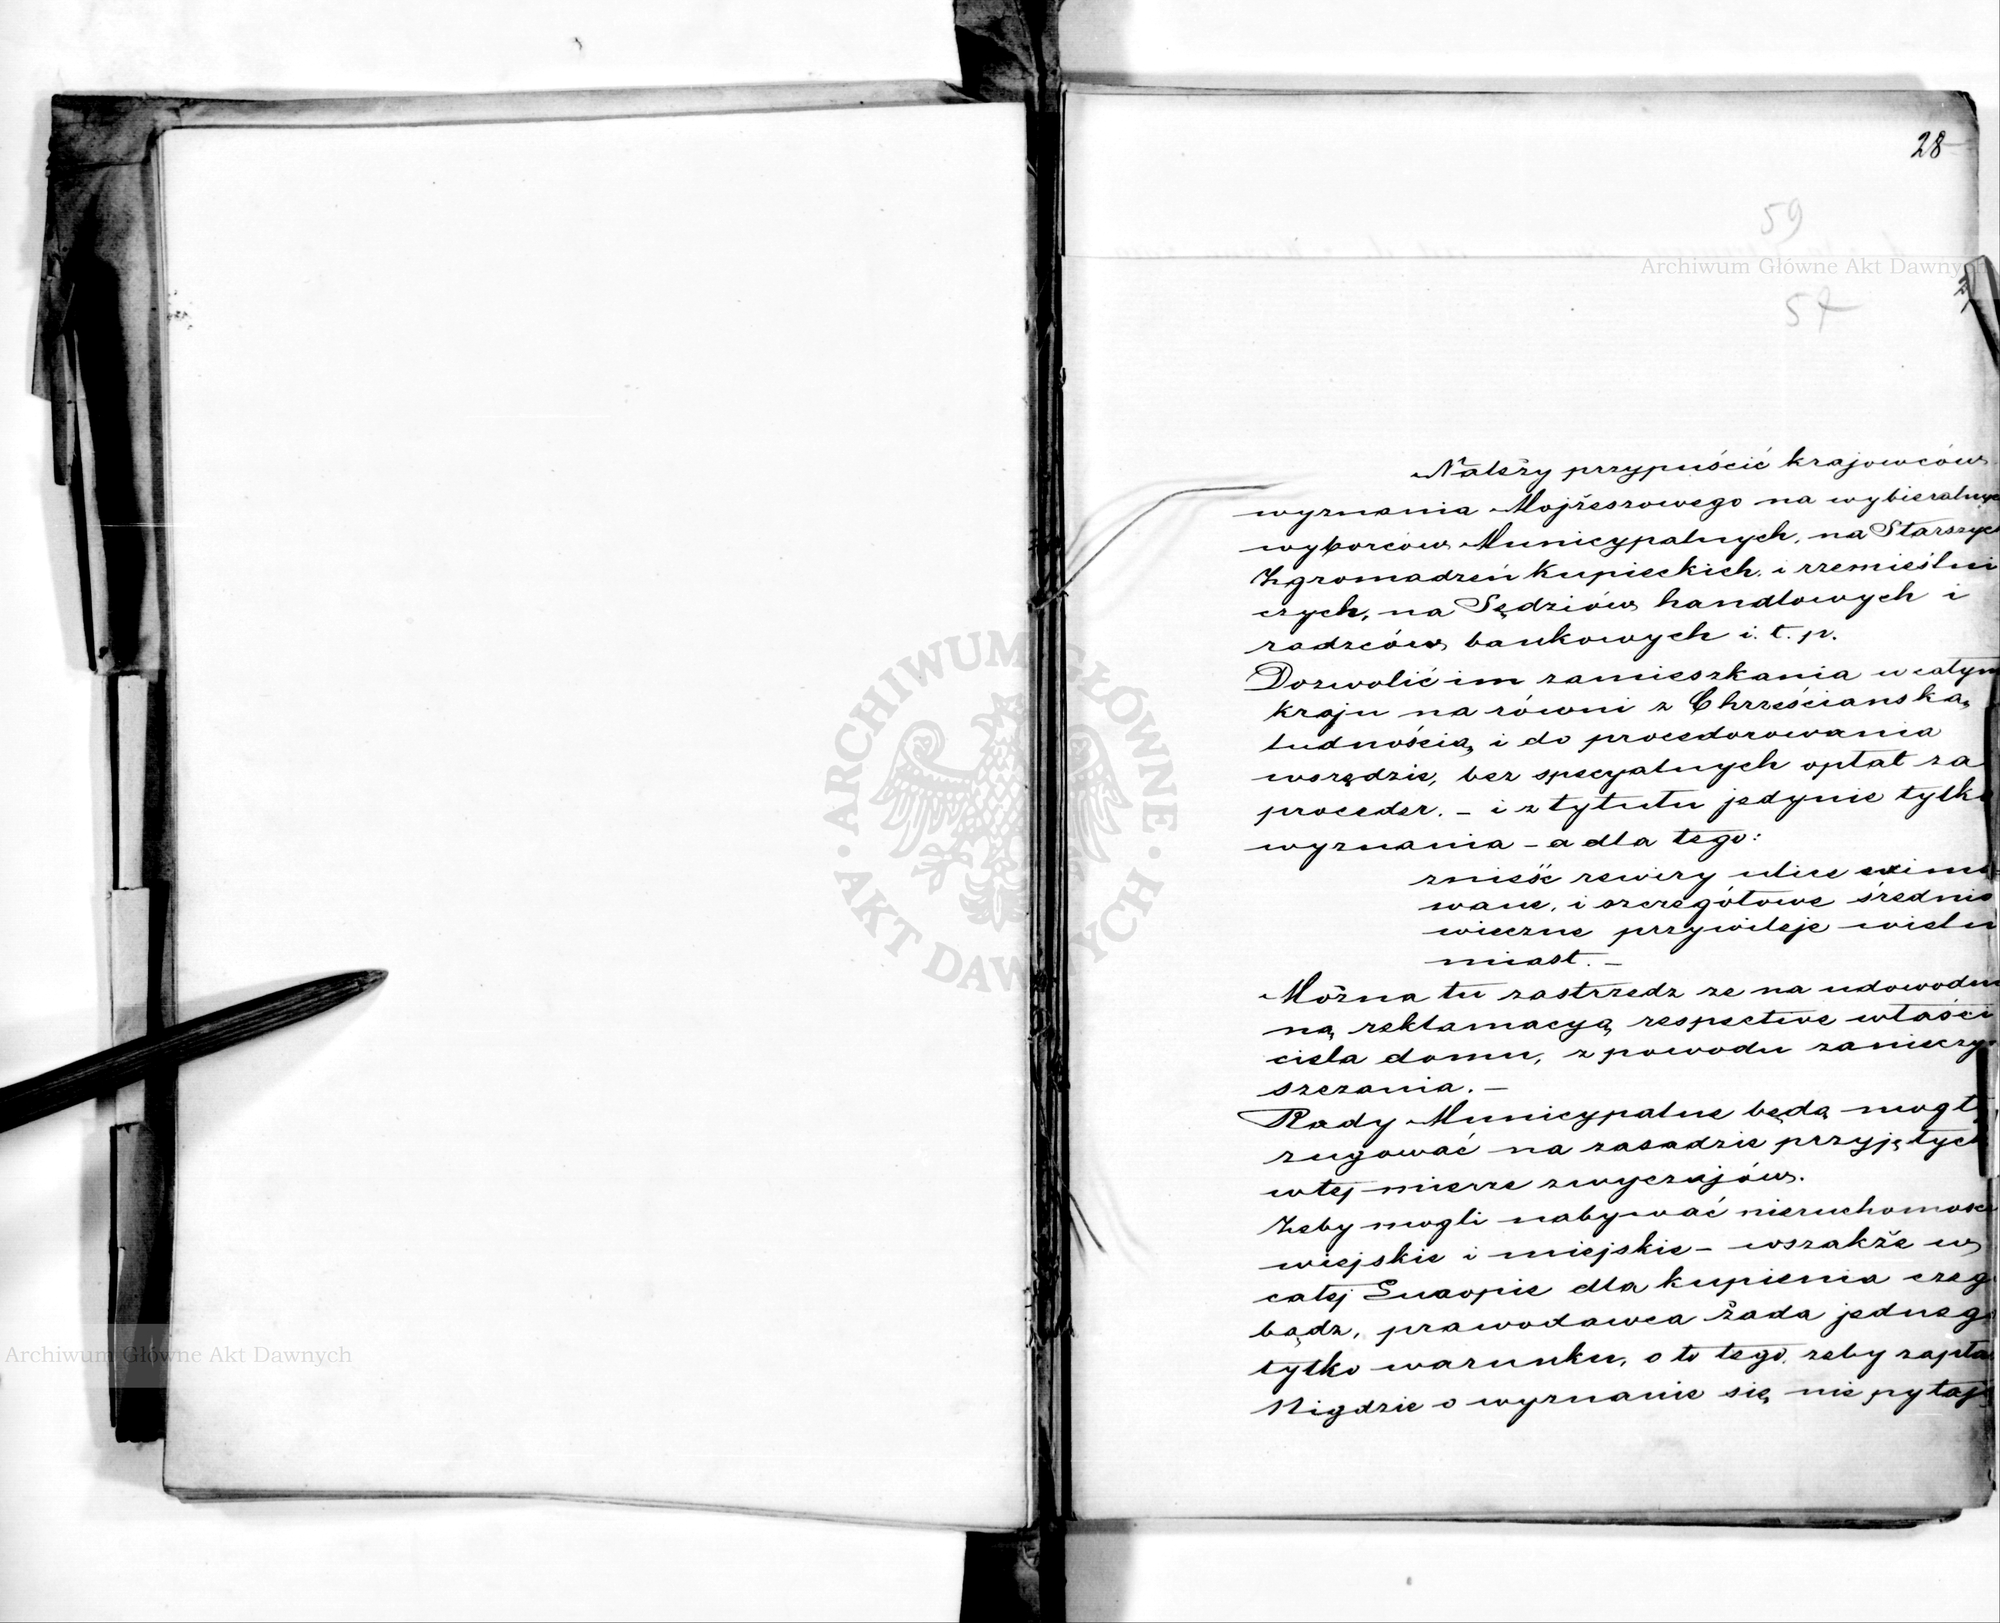 28
59
Archiwum Główne Akt Dawnych
57
Należy przypuścić krajowców
wyznania Mojżeszowego na wybieralnych
wyborców Municypalnych, na Starszych
Zgromadzeń Kupieckich i rzemieślni
czych, na Sędziów handlowych i
radzców bankowych i. t. p.
Dozwolić im zamieszkania w całym
kraju na równi z Chrześciańską
ludnością i do procedorowania
wszędzie, bez specyalnych opłat za
proceder. – i z tytułu jedynie tylko
wyznania – a dla tego:
znieść rewiry ulice eximo
wane, i szczegółowe średnio
wieczne przywileje wielu
miast. –
Można tu zastrzedz ze na udowodnio
ną reklamacyą respective właści
ciela domu, z powodu zanieczy
szczania. –
Rady Municypalne będą mogły
rugować na zasadzie przyjętych
w tej mierze zwyczajów.
Żeby mogli nabywać nieruchomości
wiejskie i miejskie – wszakże w
całej Europie dla kupienia czego
bądz, prawodawca żada jednego
tylko warunku, o to tego, zeby zapłac
Nigdzie o wyznanie się nie pytają
ARCHIWUM GŁÓWNE AKT DAWNYCH
Archiwum Główne Akt Dawnych